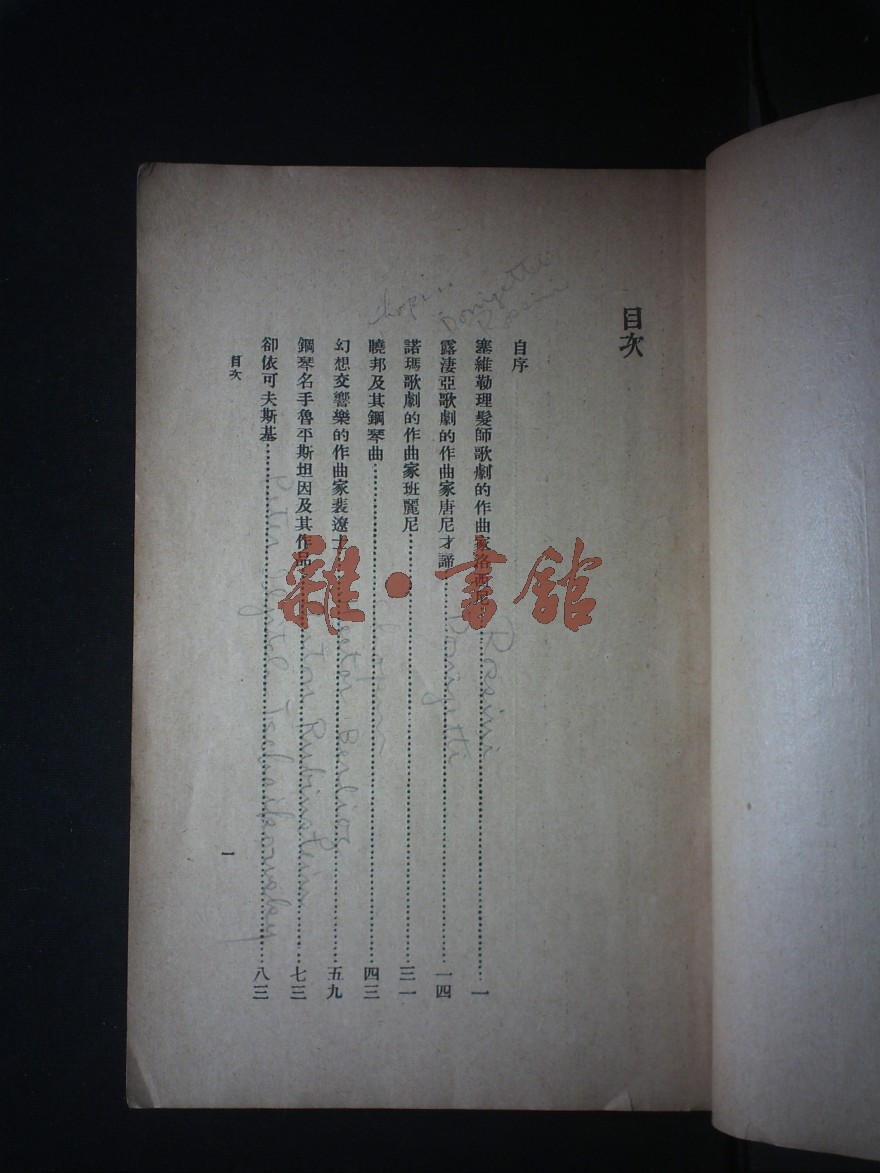 目次
自序
塞維勒理髮師歌劇的作曲家洛西尼⋯⋯一
露淒亞歌劇的作曲家唐尼才諦⋯⋯一四
諾瑪歌劇的作曲家班麗尼⋯⋯三一
曉邦及其鋼琴曲⋯⋯四三
幻想交響樂的作曲家裴遼士⋯⋯五九
鋼琴名手魯平斯坦因及其作品⋯⋯七三
卻依可夫斯基⋯⋯八三
目次
一
Donizetti
Rossini
Rossini
Donizetti
Chopin
Hector Berlioz
Anton Rubinstein
雜·書館